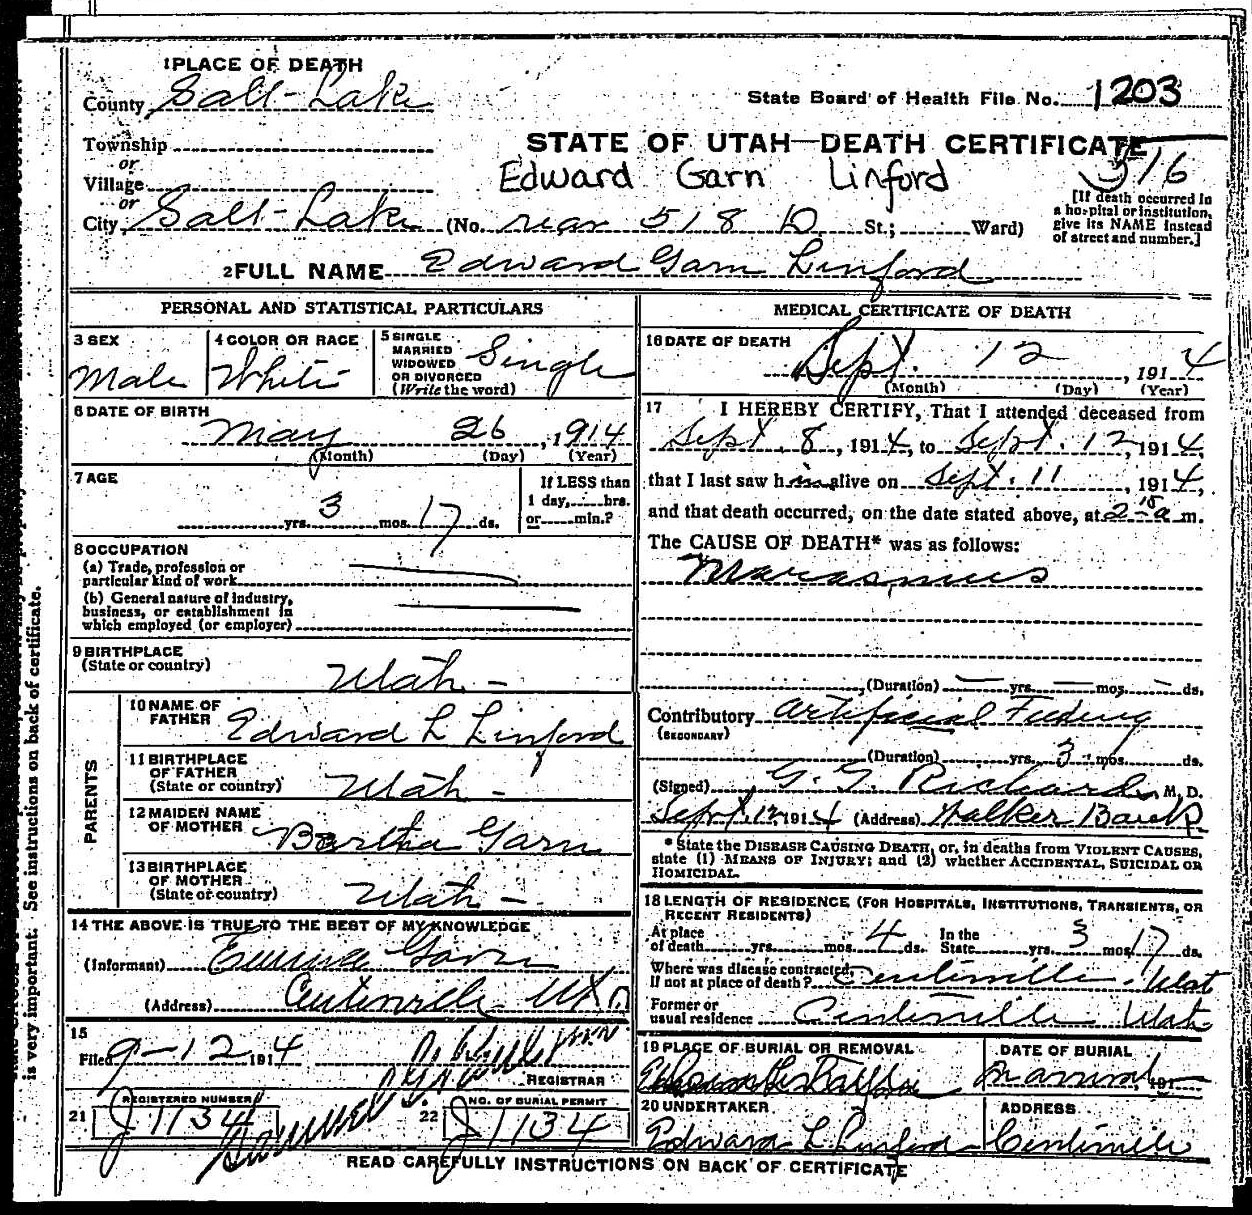 1 PLACE OF DEATH
County Salt Lake
State Board of Health File No. 1203
Township
or
Village
or
STATE OF UTAH—DEATH CERTIFICATE
Edward Garn Linford
316
City Salt Lake (No. rear 518 D St.; Ward)
[If death occurred in a hospital or institution, give its NAME instead of street and number.]
2 FULL NAME Edward Garn Linford
PERSONAL AND STATISTICAL PARTICULARS
3 SEX
Male
4 COLOR OR RACE
White
5 SINGLE
MARRIED
WIDOWED
OR DIVORCED
(Write the word)
Single
6 DATE OF BIRTH
May 26, 1914
(Month) (Day) (Year)
7 AGE
yrs. 3 mos. 17 ds.
If LESS than
1 day, hrs.
or min.?
8 OCCUPATION
(a) Trade, profession or
particular kind of work
(b) General nature of industry,
business, or establishment in
which employed (or employer)
9 BIRTHPLACE
(State or country)
Utah -
PARENTS
10 NAME OF
FATHER
Edward L Linford
11 BIRTHPLACE
OF FATHER
(State or country)
Utah -
12 MAIDEN NAME
OF MOTHER
Bertha Garn
13 BIRTHPLACE
OF MOTHER
(State or country)
Utah -
14 THE ABOVE IS TRUE TO THE BEST OF MY KNOWLEDGE
(Informant) Garn
(Address) Centerville
15
Filed 9-12 1914
REGISTRAR
21 REGISTERED NUMBER
J 1134
22 NO. OF BURIAL PERMIT
J 1134
MEDICAL CERTIFICATE OF DEATH
16 DATE OF DEATH
Sept. 12, 1914
(Month) (Day) (Year)
17 I HEREBY CERTIFY, That I attended deceased from
Sept. 8, 1914, to Sept. 12, 1914,
that I last saw him alive on Sept. 11, 1914,
and that death occurred, on the date stated above, at 2-15 a m.
The CAUSE OF DEATH* was as follows:
Marasmus
(Duration) yrs. mos. ds.
Contributory Artificial Feeding
(SECONDARY)
(Duration) yrs. 3 mos. ds.
(Signed) G. G. Richards, M. D.
Sept. 12, 1914 (Address) Walker Bank
* State the DISEASE CAUSING DEATH, or, in deaths from VIOLENT CAUSES,
state (1) MEANS OF INJURY; and (2) whether ACCIDENTAL, SUICIDAL OR
HOMICIDAL.
18 LENGTH OF RESIDENCE (FOR HOSPITALS, INSTITUTIONS, TRANSIENTS, OR
RECENT RESIDENTS)
At place
of death yrs. mos. 4 ds.
In the
State yrs. 3 mos. 17 ds.
Where was disease contracted,
If not at place of death? Centerville Utah
Former or
usual residence Centerville Utah
19 PLACE OF BURIAL OR REMOVAL
DATE OF BURIAL
191
20 UNDERTAKER
Edward L Linford
ADDRESS
Centerville
READ CAREFULLY INSTRUCTIONS ON BACK OF CERTIFICATE
is very important. See instructions on back of certificate.